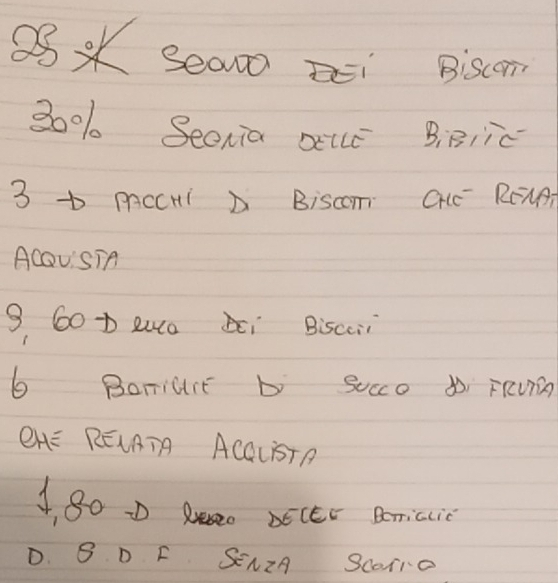 25 % SCONTO DEI BISCOTTI
30% SCONTO DELLE BIBITE
3 → PACCHI DI BISCOTTI CHE RENATA
ACQUISTA
9,60 → euro DEI BISCOTTI
6 BOTTIGLIE DI SUCCO DI FRUTTA
CHE RENATA ACQUISTA
1,80 → DELLE BOTTIGLIE
D. S. D F SENZA SCONTO